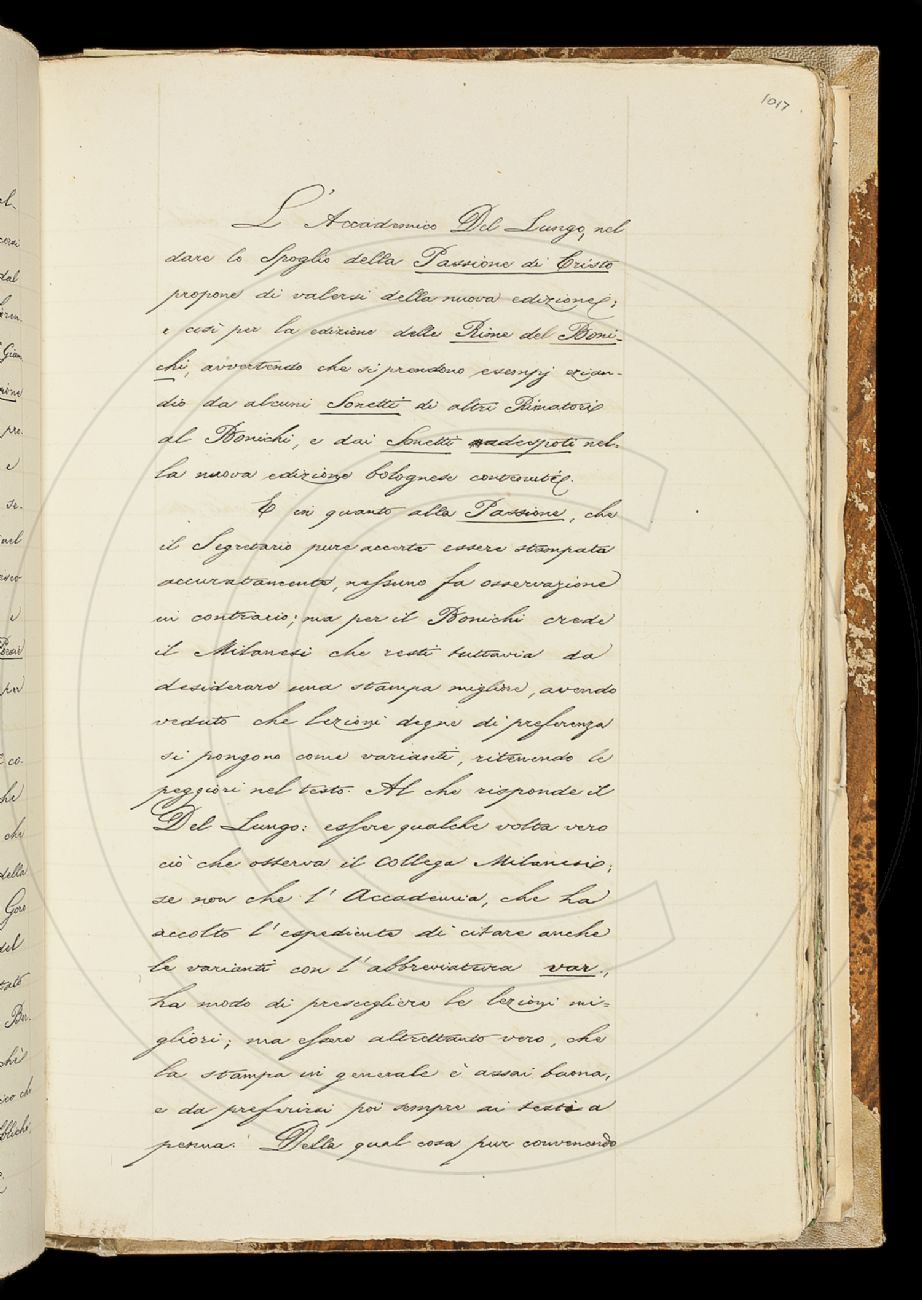 1017
L'Accademico Del Lungo, nel
dare lo Spoglio della Passione di Cristo
propone di valersi della nuova edizione;
e così per la edizione delle Rime del Boni-
chi, avvertendo che si prendono esempj ezian-
dio da alcuni Sonetti di altri Rimatori
al Bonichi, e dai Sonetti adespoti nel-
la nuova edizione bolognese contenuti.
E in quanto alla Passione, che
il Segretario pure accerta essere stampata
accuratamente, nessuno fa osservazione
in contrario; ma per il Bonichi crede
il Milanesi che resti tuttavia da
desiderare una stampa migliore, avendo
veduto che lezioni degne di preferenza
si pongono come varianti, ritenendo le
peggiori nel testo. Al che risponde il
Del Lungo: essere qualche volta vero
ciò che osserva il Collega Milanesi;
se non che l'Accademia, che ha
accolto l'espediente di citare anche
le varianti con l'abbreviatura var.,
ha modo di prescegliere le lezioni mi-
gliori; ma essere altrettanto vero, che
la stampa in generale è assai buona,
e da preferirsi poi sempre ai testi a
penna. Della qual cosa pur convenendo